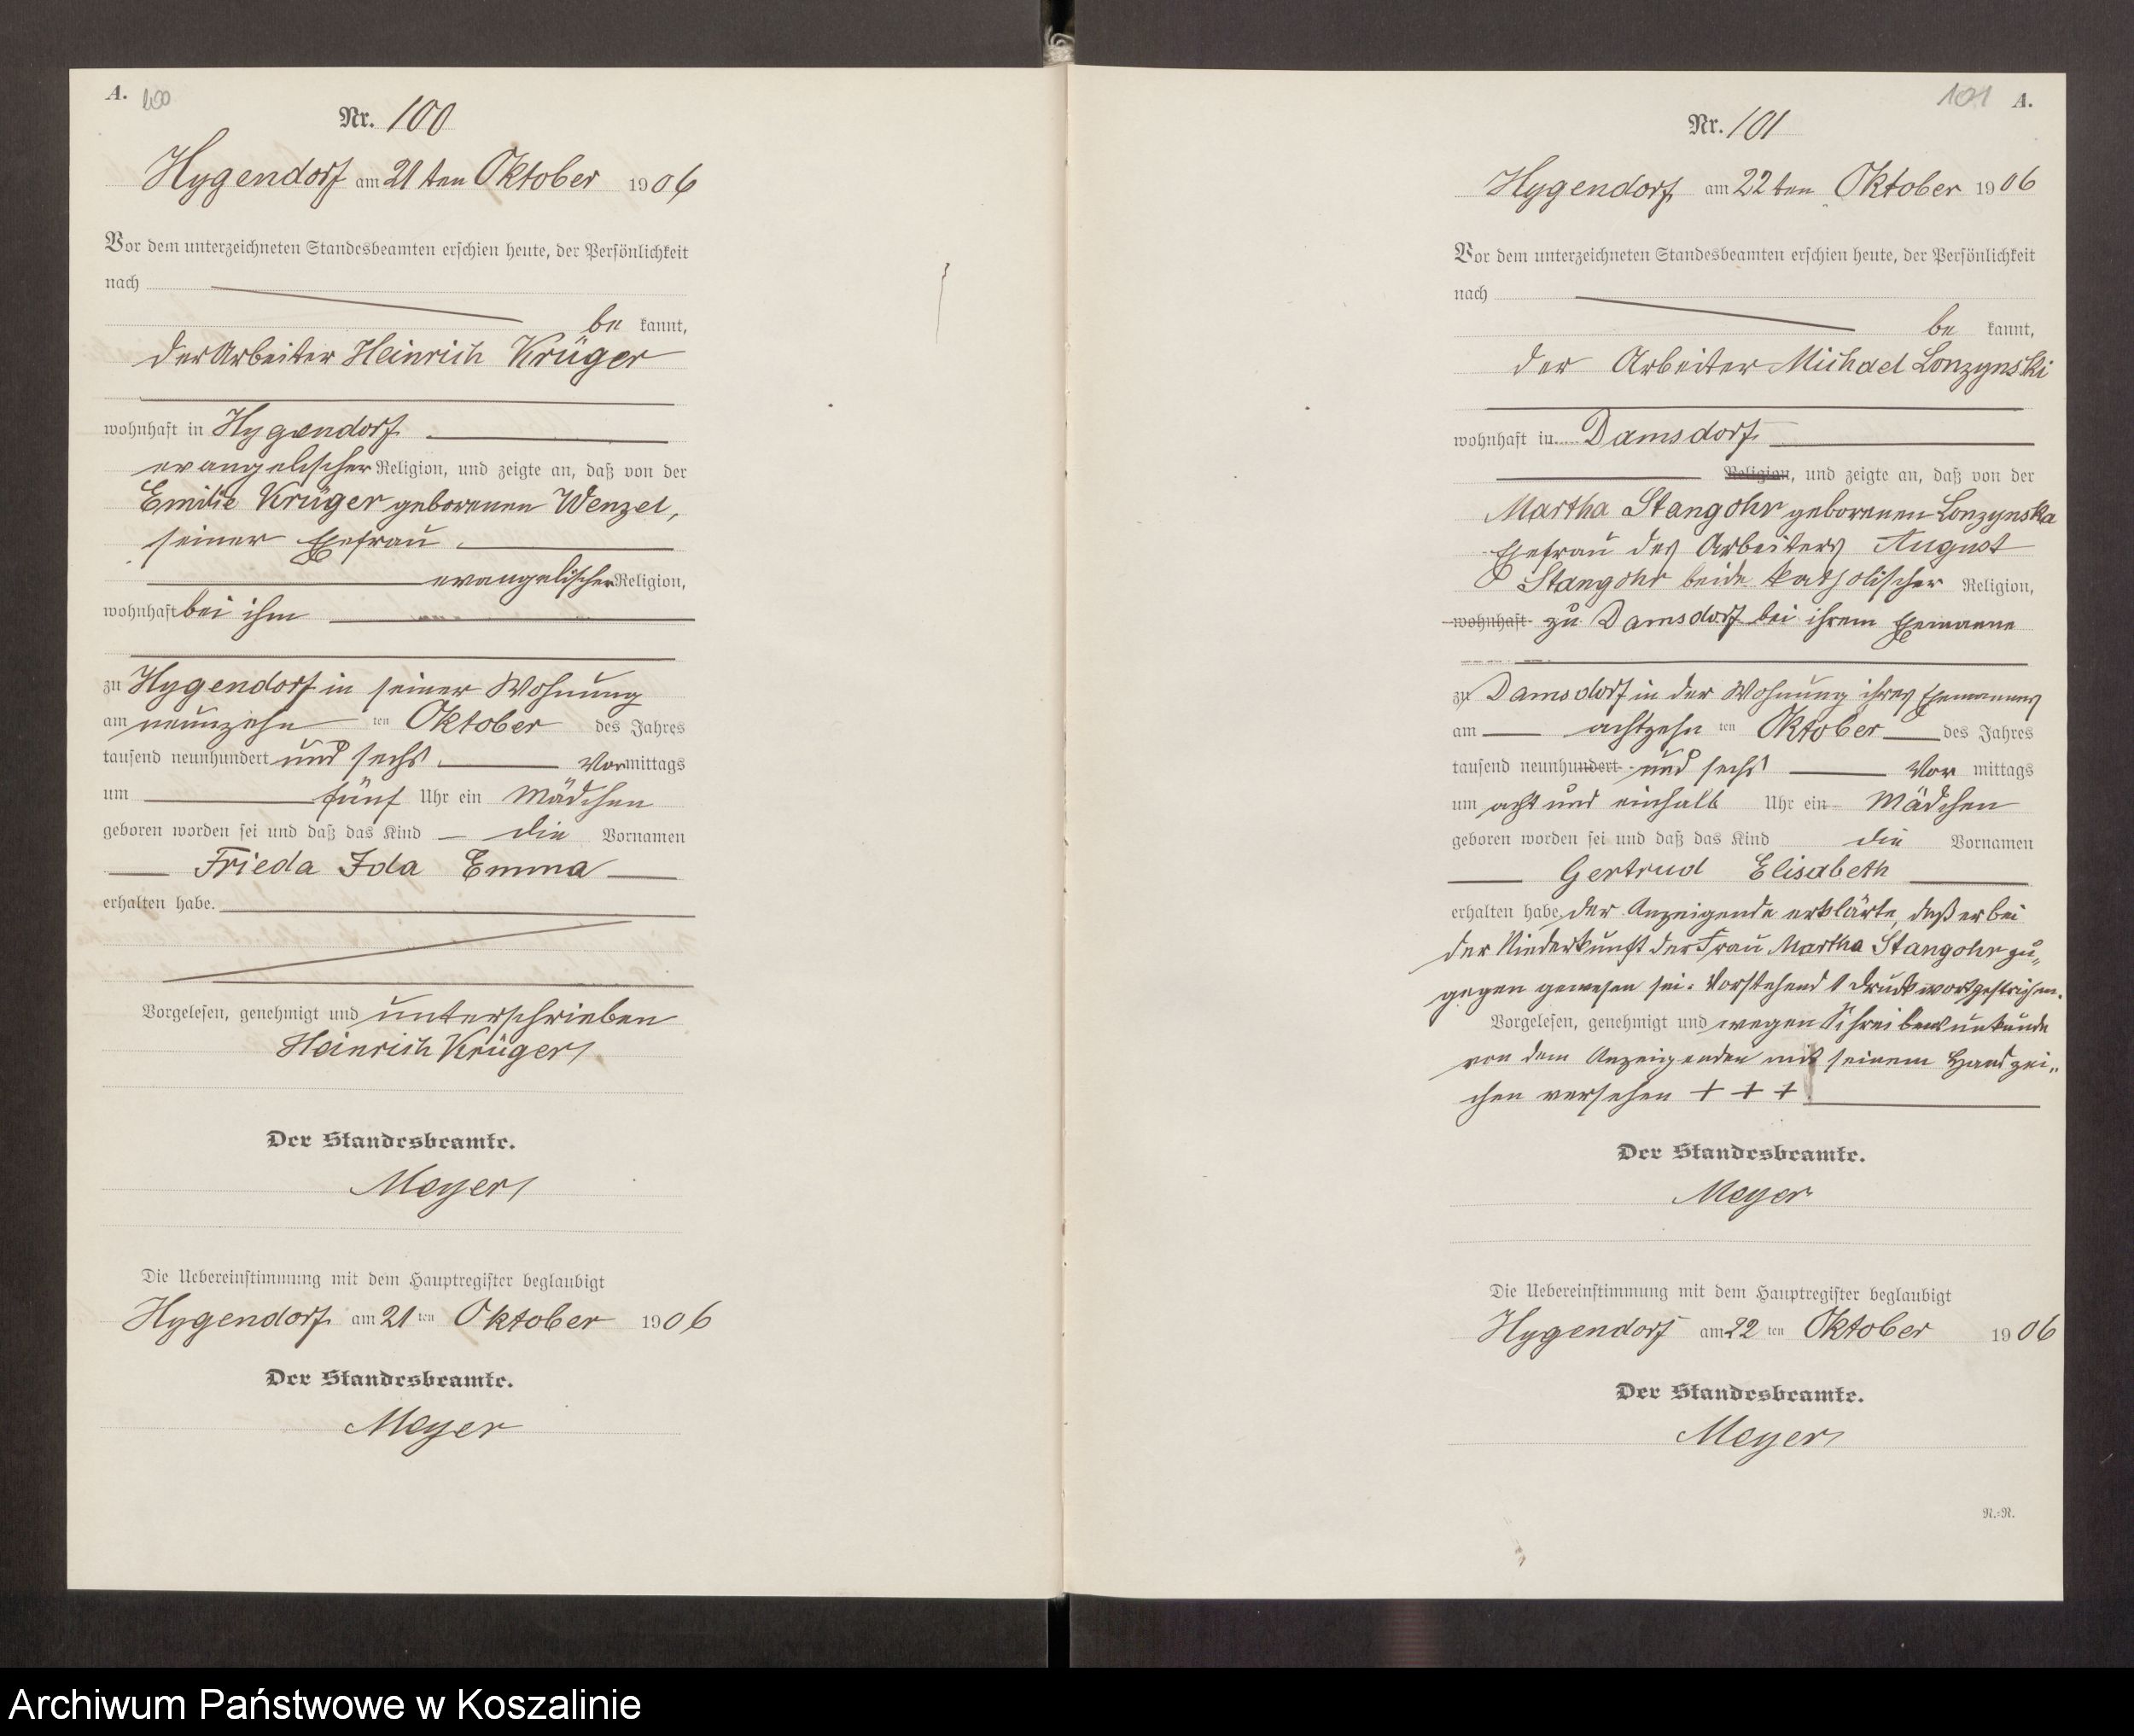 A. 100
Nr. 100
Hygendorf am 21 ten Oktober 1906
Vor dem unterzeichneten Standesbeamten erschien heute, der Persönlichkeit
nach
be kannt,
der Arbeiter Heinrich Krüger
wohnhaft in Hygendorf
evangelischer Religion, und zeigte an, daß von der
Emilie Krüger geborenen Wenzel,
seiner Ehefrau
evangelischer Religion,
wohnhaft bei ihm
zu Hygendorf in seiner Wohnung
am neunzehn ten Oktober des Jahres
tausend neunhundert und sechs Vormittags
um fünf Uhr ein Mädchen
geboren worden sei und daß das Kind die Vornamen
Frieda Ida Emma
erhalten habe.
Vorgelesen, genehmigt und unterschrieben
Heinrich Krüger
Der Standesbeamte.
Meyer
Die Uebereinstimmung mit dem Hauptregister beglaubigt
Hygendorf am 21 ten Oktober 1906
Der Standesbeamte.
Meyer
101 A.
Nr. 101
Hygendorf am 22 ten Oktober 1906
Vor dem unterzeichneten Standesbeamten erschien heute, der Persönlichkeit
nach
be kannt,
der Arbeiter Michael Lonzynski
wohnhaft in Damsdorf
Religion, und zeigte an, daß von der
Martha Stangohr geborenen Lonzynska
Ehefrau des Arbeiters August
Stangohr beide katholischer Religion,
wohnhaft zu Damsdorf bei ihrem Ehemanne
zu Damsdorf in der Wohnung ihres Ehemannes
am achtzehn ten Oktober des Jahres
tausend neunhundert und sechs Vor mittags
um acht und einhalb Uhr ein Mädchen
geboren worden sei und daß das Kind die Vornamen
Gertrud Elisabeth
erhalten habe. Der Anzeigende erklärte, daß er bei
der Niederkunft der Frau Martha Stangohr zu„
gegen gewesen sei. Vorstehend 1 Druckwort gestrichen.
Vorgelesen, genehmigt und wegen Schreibensunkunde
von dem Anzeigenden mit seinem Handzei„
chen versehen + + +
Der Standesbeamte.
Meyer
Die Uebereinstimmung mit dem Hauptregister beglaubigt
Hygendorf am 22 ten Oktober 1906
Der Standesbeamte.
Meyer
R.=R.
Archiwum Państwowe w Koszalinie